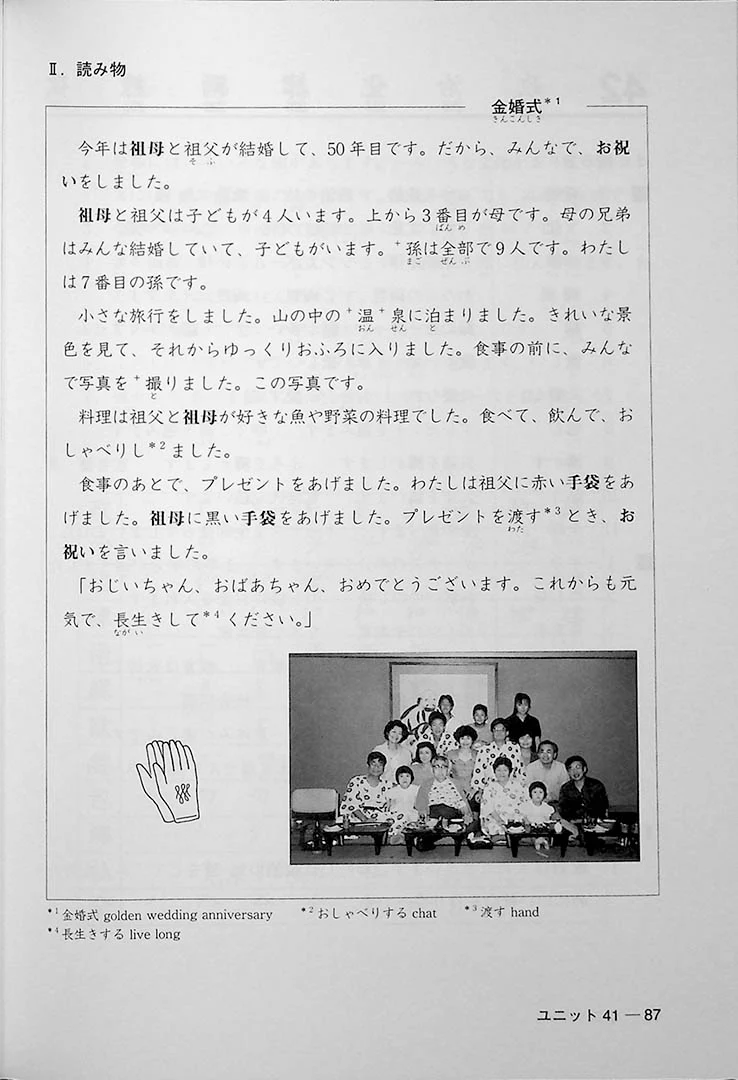 Ⅱ．読み物
金婚式*1
きんこんしき
今年は祖母と祖父が結婚して、50年目です。だから、みんなで、お祝
そふ
いをしました。
祖母と祖父は子どもが4人います。上から3番目が母です。母の兄弟
ばんめ
はみんな結婚していて、子どもがいます。+孫は全部で9人です。わたし
まご ぜんぶ
は7番目の孫です。
小さな旅行をしました。山の中の+温+泉に泊まりました。きれいな景
おん せん と
色を見て、それからゆっくりおふろに入りました。食事の前に、みんな
で写真を+撮りました。この写真です。
と
料理は祖父と祖母が好きな魚や野菜の料理でした。食べて、飲んで、お
しゃべりし*2ました。
食事のあとで、プレゼントをあげました。わたしは祖父に赤い手袋をあ
げました。祖母に黒い手袋をあげました。プレゼントを渡す*3とき、お
わた
祝いを言いました。
「おじいちゃん、おばあちゃん、おめでとうございます。これからも元
気で、長生きして*4ください。」
ながい
*1金婚式 golden wedding anniversary *2おしゃべりする chat *3渡す hand
*4長生きする live long
ユニット 41 ― 87